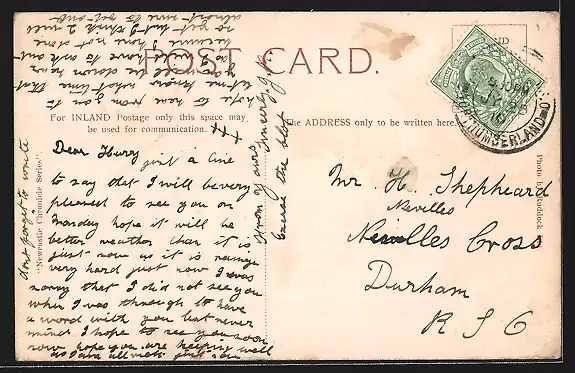 POST CARD.
For INLAND Postage only this space may
be used for communication.
The ADDRESS only to be written here.
"Newcastle Chronicle Series"
Photo by Ruddock
NORTHUMBERLAND
Dear Harry just a line
to say that I will be very
pleased to see you on
hope it will be
better weather than it is
just now as it is raining
very hard just now I was
sorry that I did not see you
when I was through to have
a word with you but never
mind I hope to see you soon
now hope you are keeping well
as I am all well just now
dont forget to write
hope to hear from you to
let me know that
to get but I think I will
almost sure to get out
from yours Sincerely J.R.
Excuse the blot
Mr H. Shepheard
Nevilles
Nevilles Cross
Durham
R S O